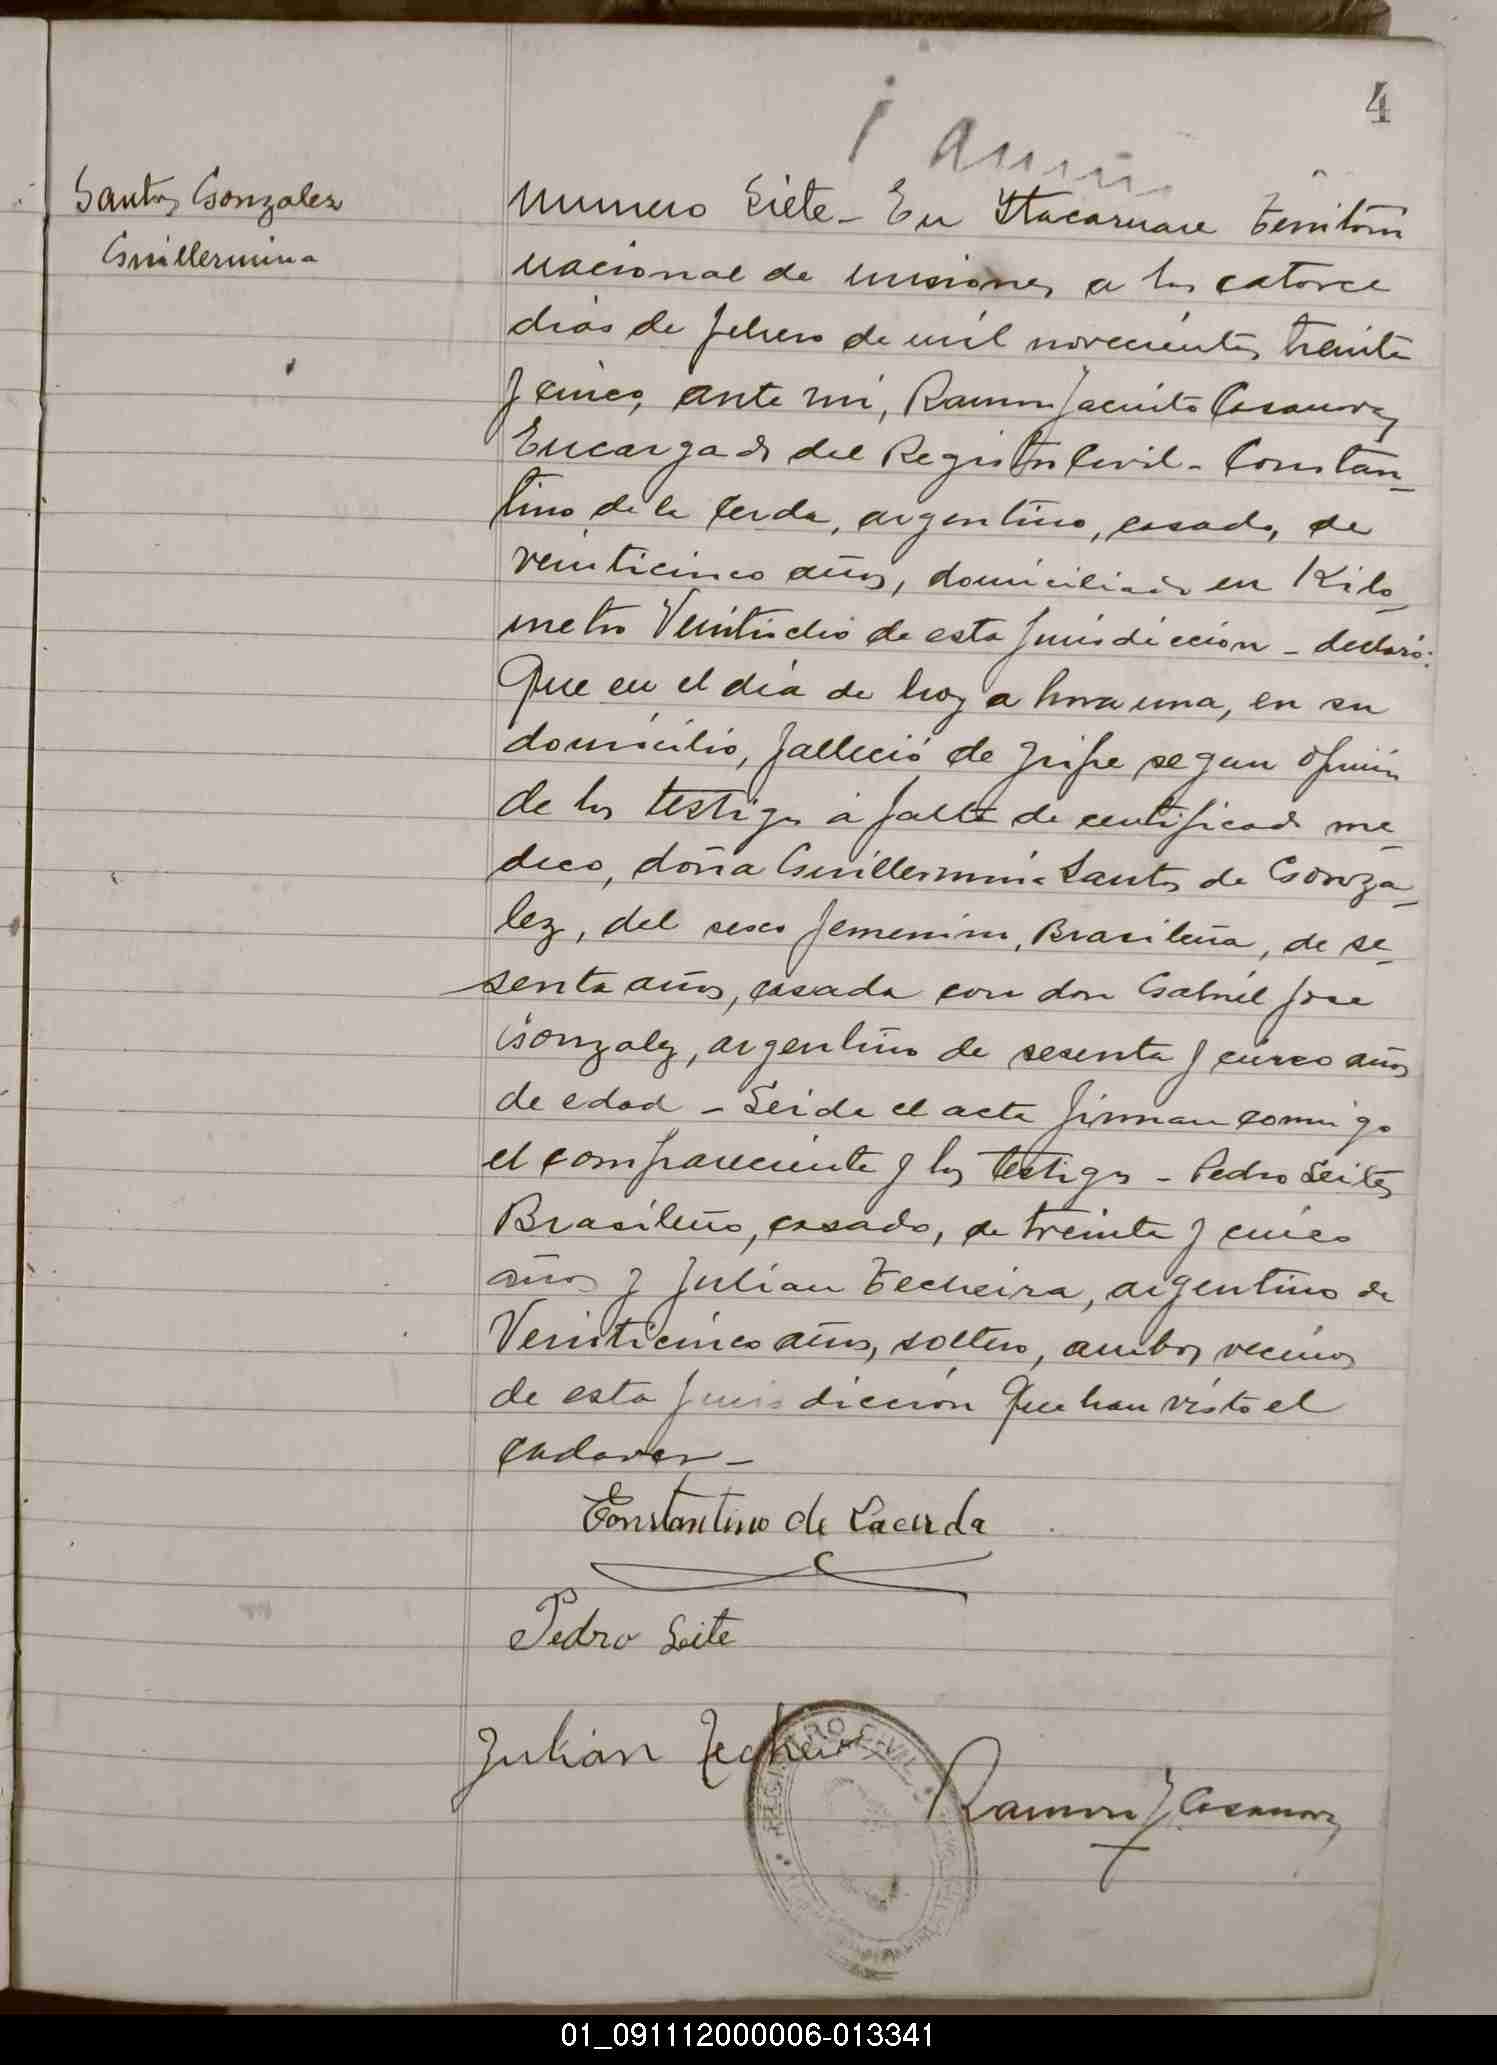 4
Santos Gonzalez
Guillermina
Numero Siete - En Itacaruare Territorio
nacional de Misiones a los catorce
dias de febrero de mil novecientos treinta
y cinco, ante mi, Ramon Jacinto Casanova
Encargado del Registro Civil - Constan-
tino de la Cerda, argentino, casado, de
veinticinco años, domiciliado en Kilo-
metro Veintiocho de esta Jurisdiccion - declaró:
Que en el día de hoy a hora una, en su
domicilio, falleció de gripe segun opinión
de los testigos á falta de certificado me-
dico, doña Guillermina Santos de Gonza-
lez, del sexo femenino, Brasileña, de se-
senta años, casada con don Gabriel Jose
Gonzalez, argentino de sesenta y cinco años
de edad - Leida el acta firman conmigo
el compareciente y los testigos - Pedro Leites
Brasileño, casado, de treinta y cinco
años y Julian Techeira, argentino de
Veinticinco años, soltero, ambos vecinos
de esta Jurisdicción Que han visto el
cadaver -
Constantino de Lacerda
Pedro Leite
Julián Techeira
Ramon J Casanova
REGISTRO CIVIL
01_091112000006-013341